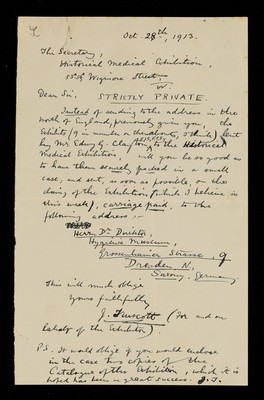 Oct. 28th, 1913.
The Secretary,
Historical Medical Exhibition,
54A Wigmore Street,
W.
Dear Sir,
STRICTLY PRIVATE.
Instead of sending to the address in the
North of England, previously given you, the
Exhibits (9 in number or thereabouts, I think) lent
by Mr. Edwd G. Clayton, to the Historical
Medical Exhibition will you be so good as
to have them securely packed in a small
case, and sent, as soon as possible, on the
closing of the Exhibition (which I believe is
this week), carriage paid, to the
following address:-
Herrn Dr
Hygiene Museum,
Grossenhainer Strasse 9
Dresden N.
Saxony, Germany
This will much oblige
Yours faithfully
J. Truscott (for and on
behalf of the Exhibitor)
P.S. It would oblige if you would enclose
in the case two copies of the
Catalogue of the Exhibition, which it is
hoped has been a great success. J.T.